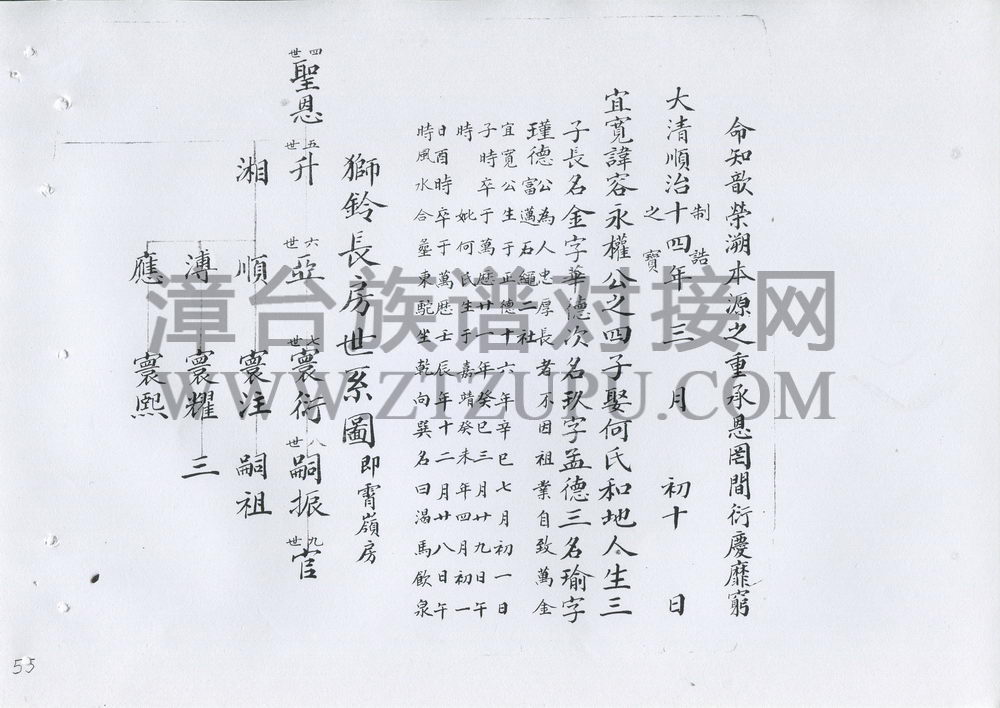 命知歆榮溯本源之重承恩罔間衍慶靡窮
制誥
之寶
大清順治十四年三月初十日
宜寬諱容永權公之四子娶何氏和地人生三
子長名金字華德次名玖字孟德三名瑜字
瑾德公為人忠厚長者不因祖業自致萬金
富邁石繩二社
宜寬公生于正德十六年辛巳七月初一日
子時卒于萬曆廿一年癸巳三月廿九日午
時妣何氏生于嘉靖癸未年四月初一
日酉時卒于萬曆壬辰年十二月廿八日午
時風水合塟東駝坐乾向巽名曰渴馬飲泉
獅鈴長房世系圖即霄嶺房
四世聖恩 五世升 六世亞 七世寰衍 八世嗣振 九世官
湘 順 寰注 嗣祖
溥 寰耀 三
應 寰熙
漳台族谱对接网
WWW.ZTZUPU.COM
55